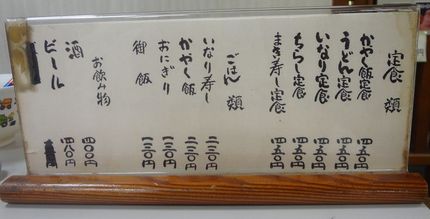 定食類
かやく飯定食 四五〇円
うどん定食 四五〇円
いなり定食 四五〇円
ちらし定食 四五〇円
まき寿し定食 四五〇円
ごはん類
いなり寿し
かやく飯
おにぎり
御飯
お飲み物
酒 四〇〇円
ビール 四八〇円